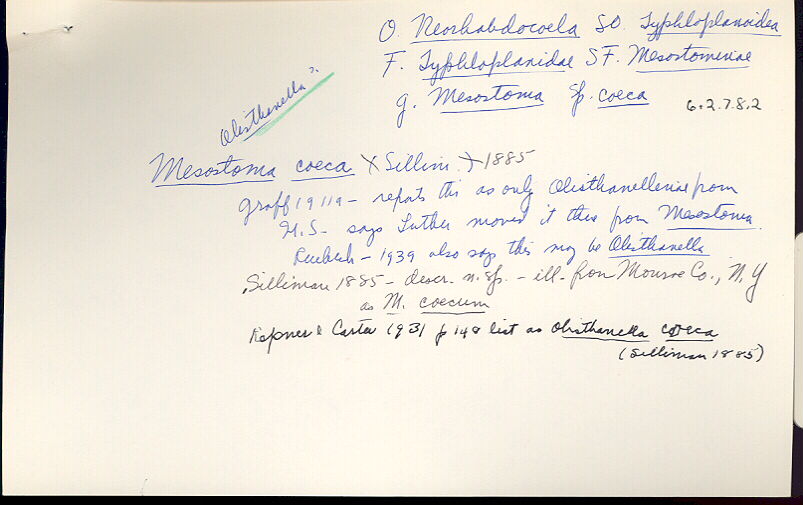 O. Neorhabdocoela SO. Typhloplanoidea
F. Typhloplanidae SF. Mesostominae
g. Mesostoma sp. coeca 6.2.7.8.2
Olisthanella ?
Mesostoma coeca (Sillim.) 1885
Graff 1911a - reports this as only Olisthanellinae from
U.S. - says Luther moved it there from Mesostoma.
Ruebush - 1939 also says this may be Olisthanella
Silliman 1885 - descr. n. sp. - ill. from Monroe Co., N.Y
as M. coecum
Kepner & Carter 1931 p 148 list as Olisthanella coeca
(Silliman 1885)